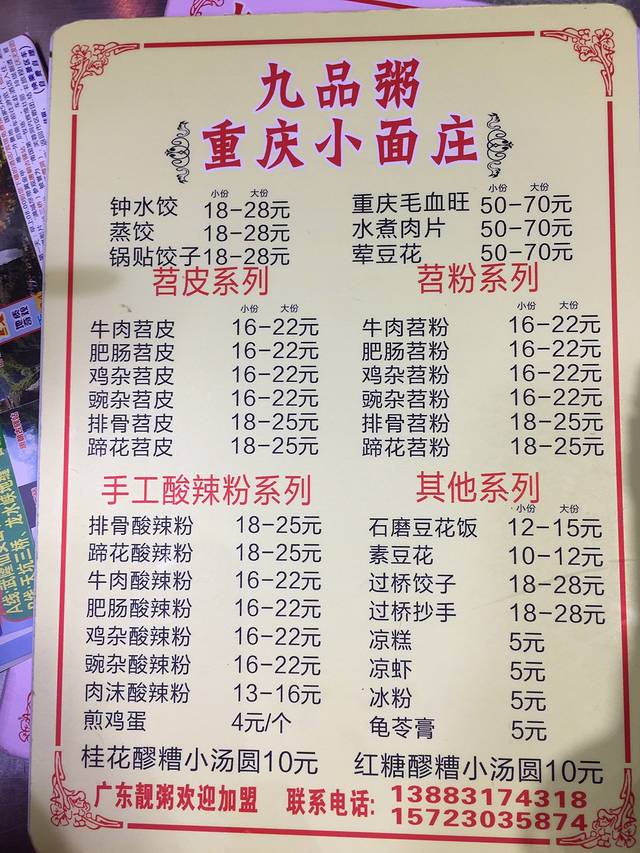 九品粥
重庆小面庄
小份 大份
钟水饺 18-28元
蒸饺 18-28元
锅贴饺子 18-28元
小份 大份
重庆毛血旺 50-70元
水煮肉片 50-70元
荤豆花 50-70元
苕皮系列
小份 大份
牛肉苕皮 16-22元
肥肠苕皮 16-22元
鸡杂苕皮 16-22元
豌杂苕皮 16-22元
排骨苕皮 18-25元
蹄花苕皮 18-25元
苕粉系列
小份 大份
牛肉苕粉 16-22元
肥肠苕粉 16-22元
鸡杂苕粉 16-22元
豌杂苕粉 16-22元
排骨苕粉 18-25元
蹄花苕粉 18-25元
手工酸辣粉系列
排骨酸辣粉 18-25元
蹄花酸辣粉 18-25元
牛肉酸辣粉 16-22元
肥肠酸辣粉 16-22元
鸡杂酸辣粉 16-22元
豌杂酸辣粉 16-22元
肉沫酸辣粉 13-16元
煎鸡蛋 4元/个
其他系列
小份 大份
石磨豆花饭 12-15元
素豆花 10-12元
过桥饺子 18-28元
过桥抄手 18-28元
凉糕 5元
凉虾 5元
冰粉 5元
龟苓膏 5元
桂花醪糟小汤圆10元
红糖醪糟小汤圆10元
广东靓粥欢迎加盟 联系电话: 13883174318
15723035874